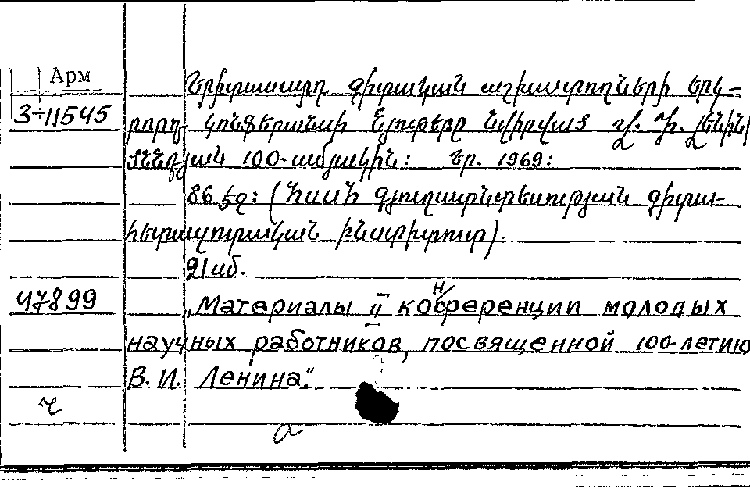 Арм
Երիտասարդ գիտական աշխատողների երկ-
3-11545
րորդ կոնֆերանսի նյութերը նվիրված Վ. Ի. Լենինի
ծննդյան 100-ամյակին: Եր. 1969:
86 էջ: (ՀՍՍՀ գյուղատնտեսության գիտա-
հետազոտական ինստիտուտ).
21 սմ.
47899
„Материалы II конференции молодых
научных работников, посвященной 100-летию
В. И. Ленина".